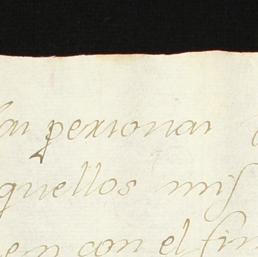 las personas
quellos mis
en con el fin